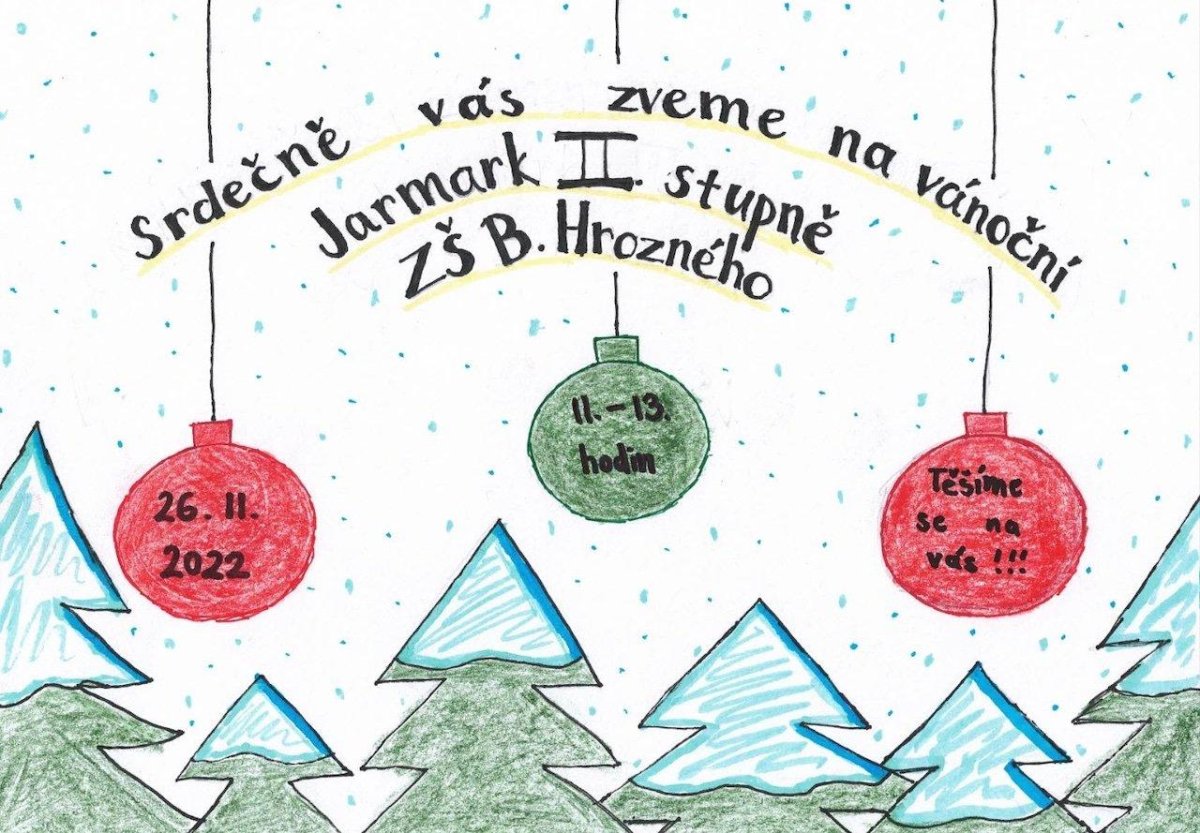 Srdečně vás zveme na vánoční
Jarmark II. stupně
ZŠ B. Hrozného
26. 11.
2022
11. – 13.
hodin
Těšíme
se na
vás!!!